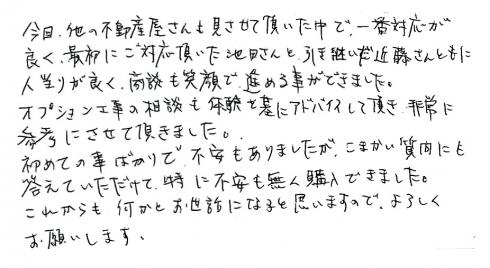 今回、他の不動産屋さんも見させて頂いた中で、一番対応が
良く、最初にご対応頂いた池田さんと、引き継いだ近藤さんともに
人当りが良く、商談も笑顔で、進める事ができました。
オプション工事の相談も体験を基にアドバイスして頂き、非常に
参考にさせて頂きました。
初めての事ばかりで、不安もありましたが、こまかい質問にも
答えていただけて、特に不安も無く購入できました。
これからも、何かとお世話になると思いますので、よろしく
お願いします、